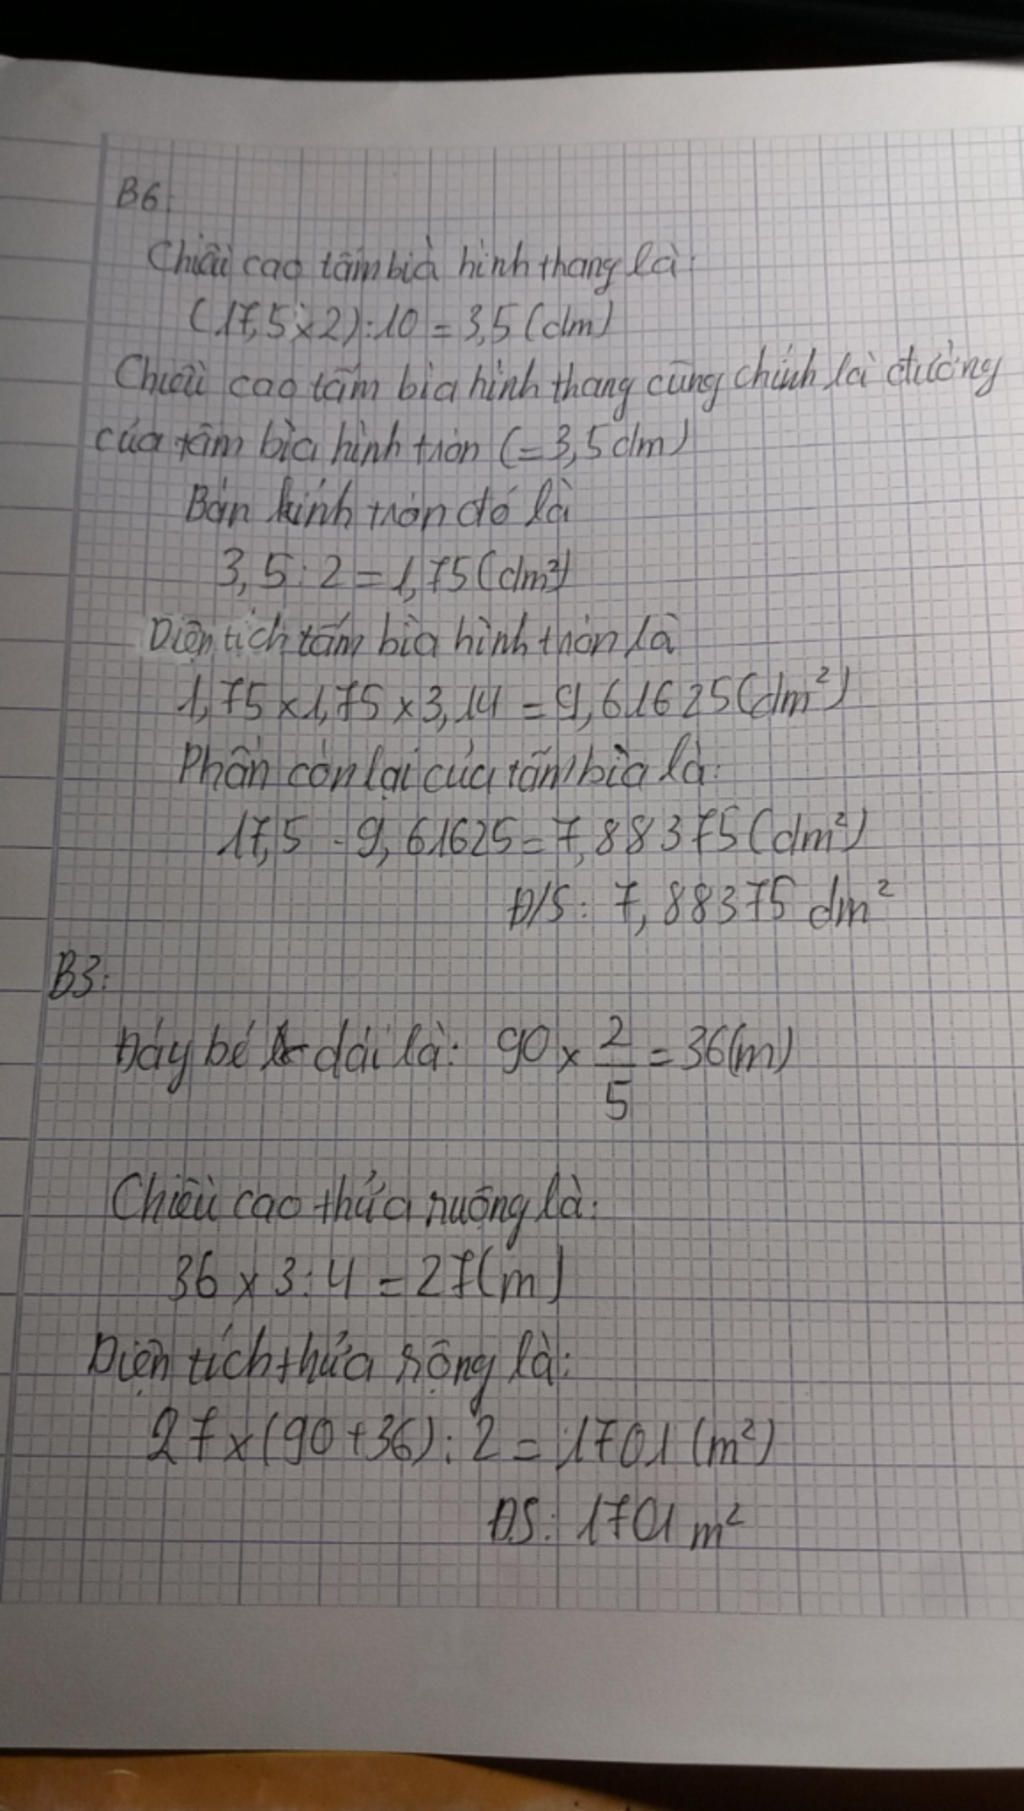 B6:
Chiều cao tấm bìa hình thang là:
(17,5 x 2) : 10 = 3,5 (dm)
Chiều cao tấm bìa hình thang cũng chính là đường
của tấm bìa hình tròn (= 3,5 dm)
Bán kính tròn đó là
3,5 : 2 = 1,75 (dm²)
Diện tích tấm bìa hình tròn là
1,75 x 1,75 x 3,14 = 9,61625 (dm²)
Phần còn lại của tấm bìa là:
17,5 - 9,61625 = 7,88375 (dm²)
Đ/S: 7,88375 dm²
B3:
Đáy bé dài là: 90 x 2/5 = 36 (m)
Chiều cao thửa ruộng là:
36 x 3 : 4 = 27 (m)
Diện tích thửa rộng là:
27 x (90 + 36) : 2 = 1701 (m²)
ĐS: 1701 m²